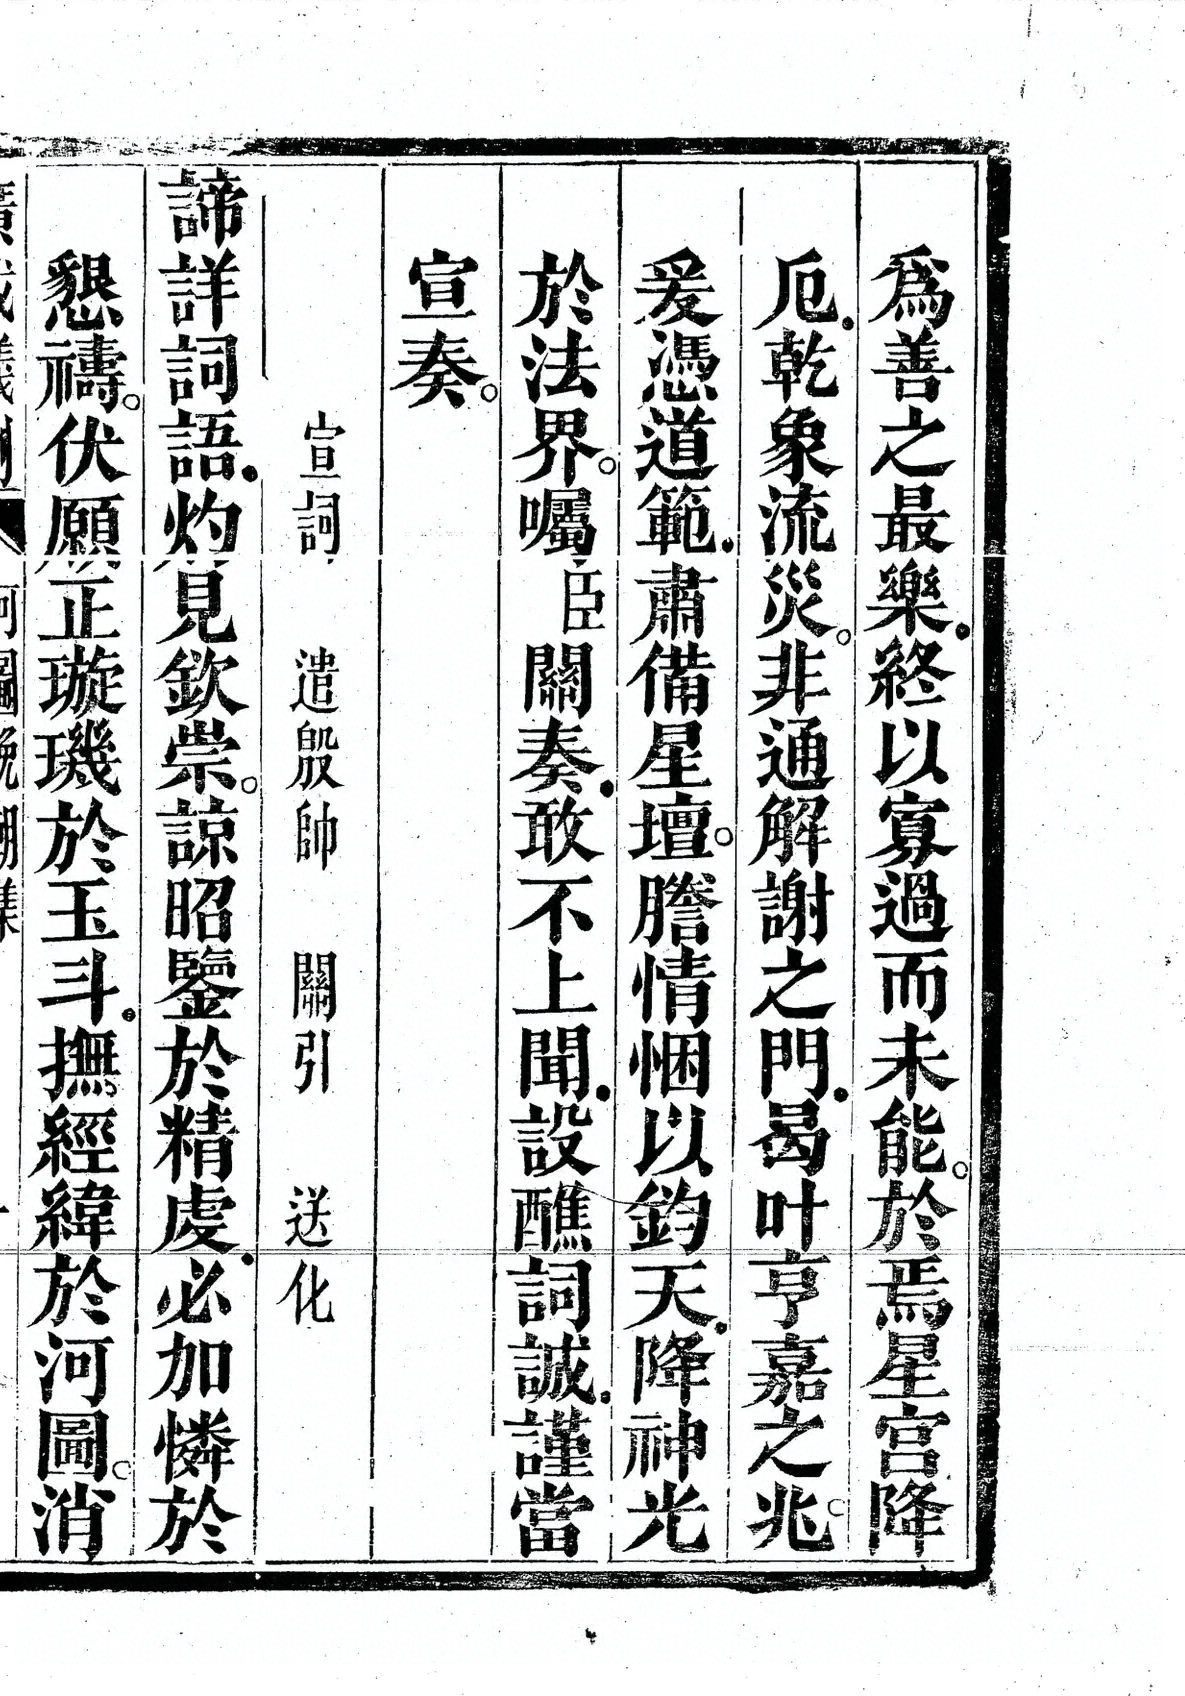 爲善之最樂.終以寡過而未能。於焉星宮降
厄.乾象流災。非通解謝之門.曷叶亨嘉之兆。
爰憑道範.肅備星壇。謄情悃以鈞天.降神光
於法界。囑臣關奏.敢不上聞.設醮詞誠.謹當
宣奏。
宣詞　遣殷帥　關引　送化
諦詳詞語.灼見欽崇。諒昭鑒於精虔.必加憐於
懇禱。伏願正璇璣於玉斗.撫經緯於河圖。消
廣成儀制 河圖晚朝集